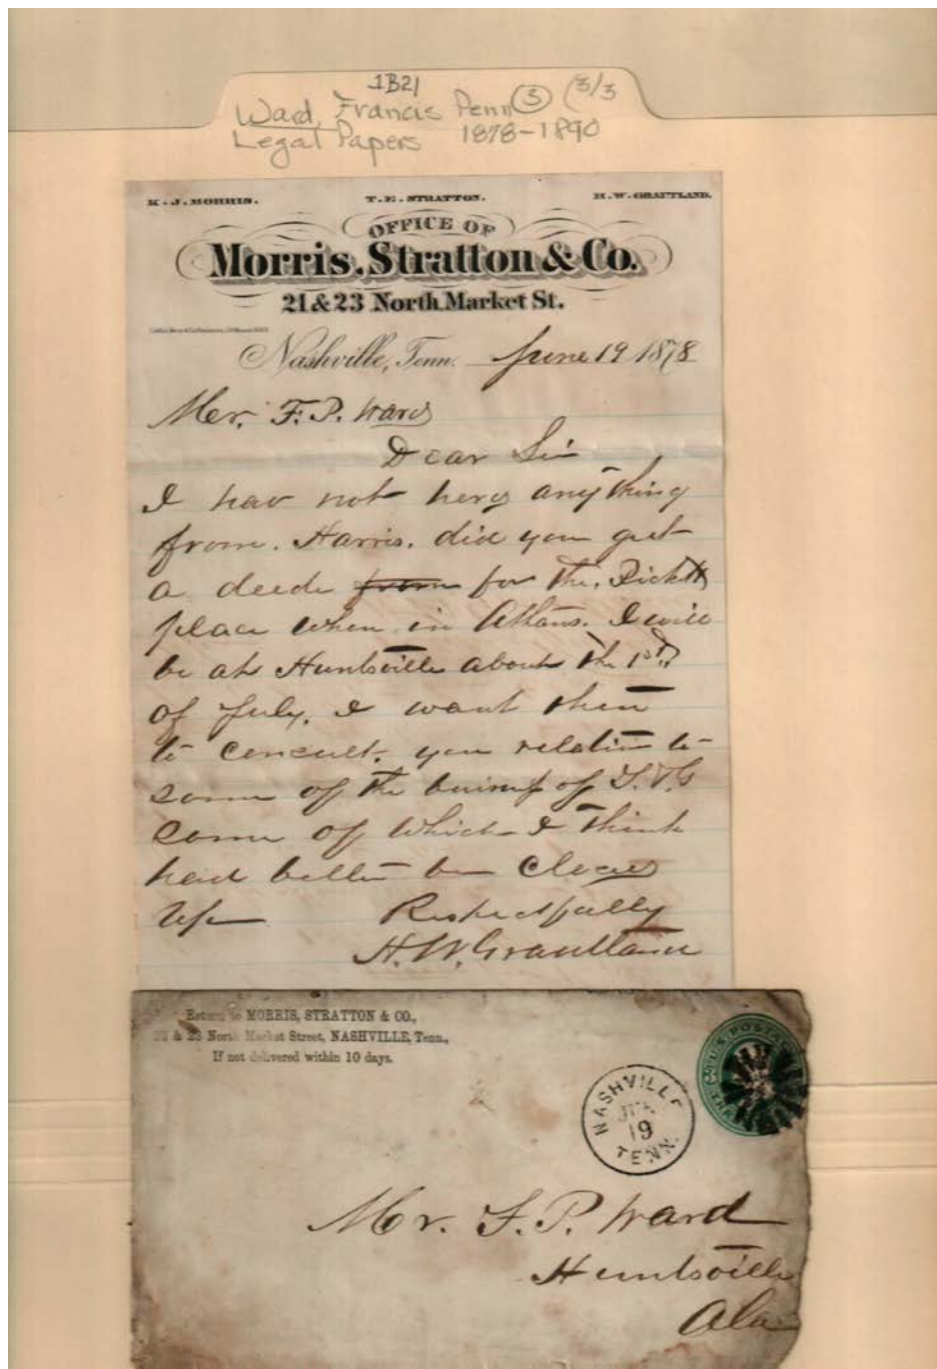 1B21
Ward, Francis Penn ③ (3/3
Legal Papers 1878-1890
K. J. MORRIS. T. E. STRATTON. H. W. GRANTLAND.
OFFICE OF
Morris, Stratton & Co.
21 & 23 North Market St.
Nashville, Tenn. June 19 1878
Mr. F. P. Ward
Dear Sir
I hav not herd anything
from. Harris. did you get
a deede from for the, Pickett
place when in Athens. I will
be at Huntsville about the 1st
of July. I want then
to concult. you relative to
some of the
some of which I think
had better be closed
up Respectfully
H. W. Grantland
Return to MORRIS, STRATTON & CO.,
21 & 23 North Market Street, NASHVILLE, Tenn.,
If not delivered within 10 days.
U.S. POSTAGE
NASHVILLE
JUN
19
TENN.
Mr. F. P. Ward
Huntsville
Ala